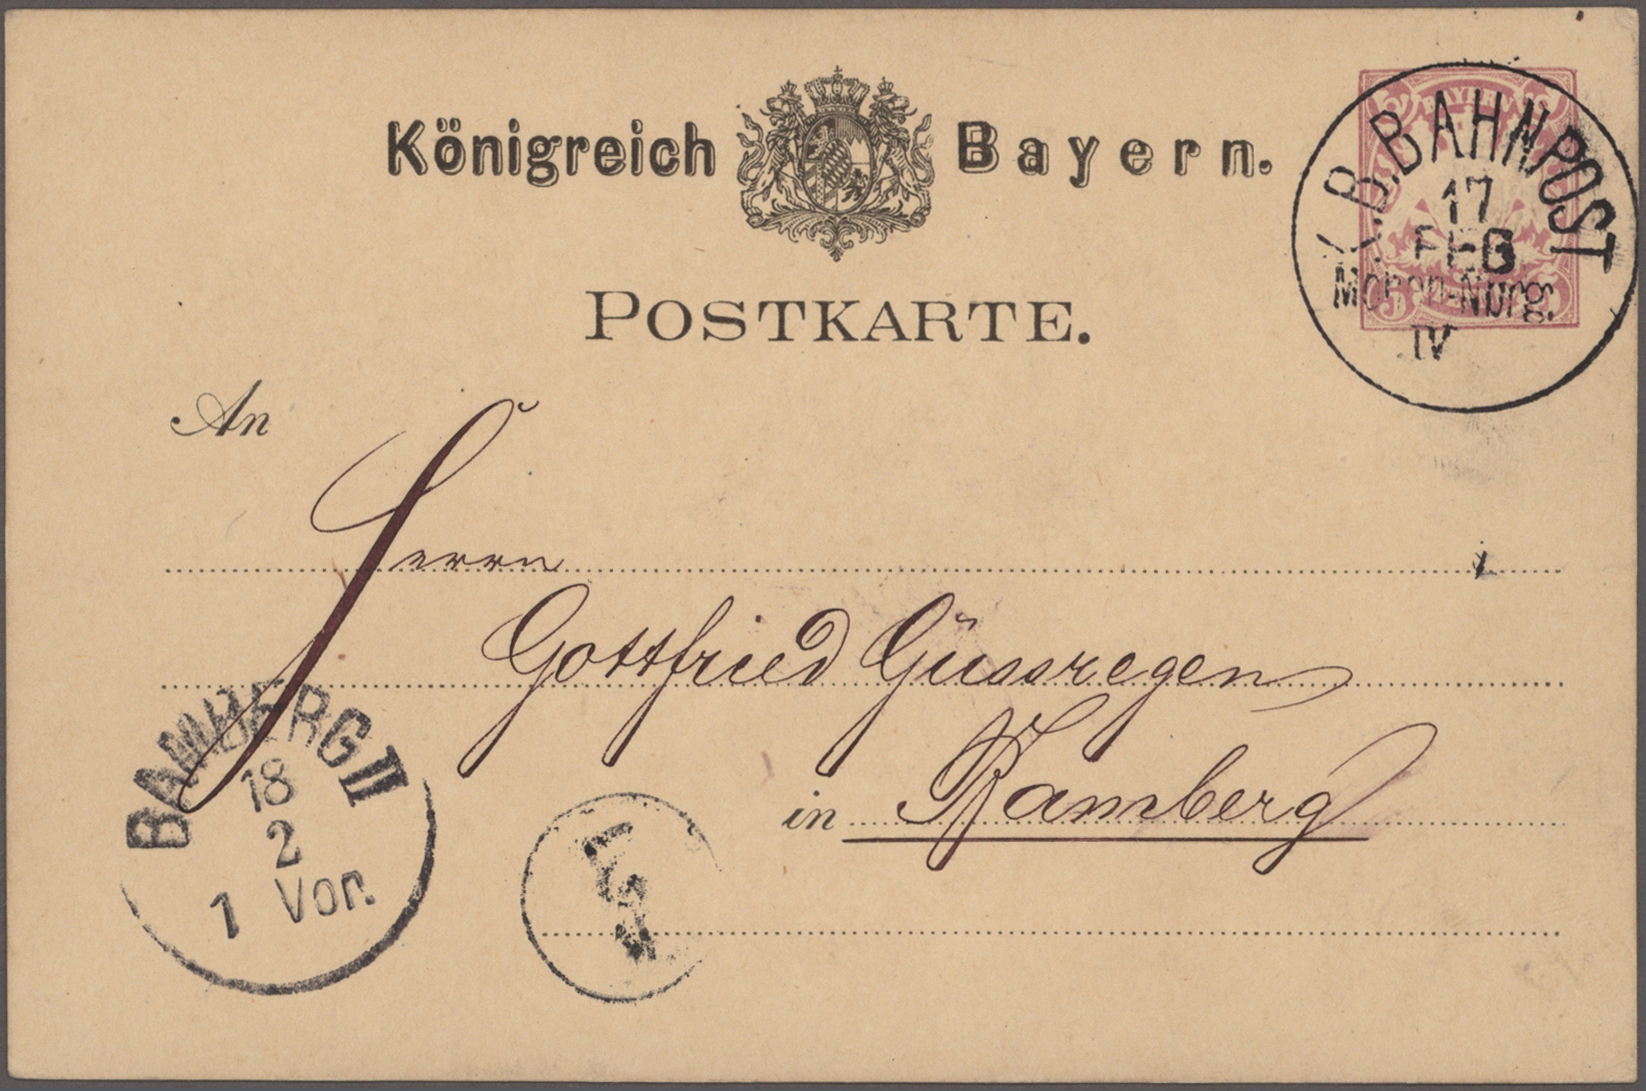 Königreich Bayern.
BAYERN
K.B. BAHNPOST
17
FEB
Nbrg.
IV
POSTKARTE.
An
Herrn
Gottfried Güssregen
in Bamberg
BAMBERG II
18
2
1 Vor.